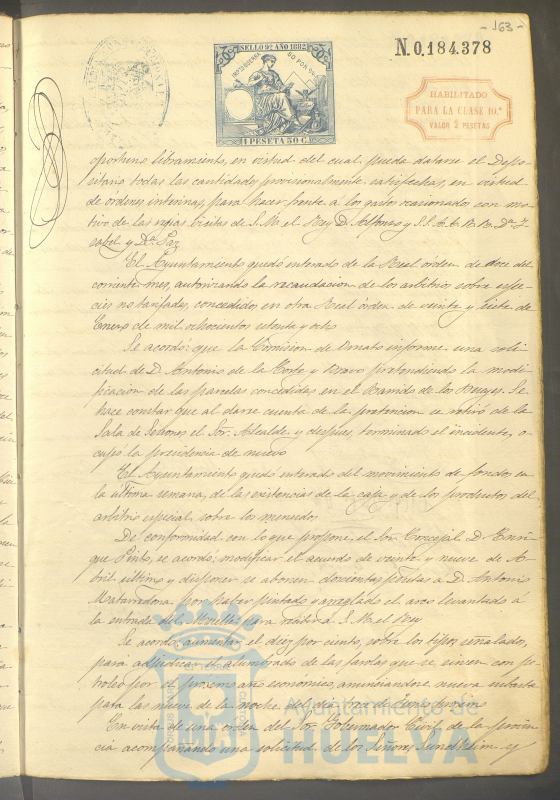 - 163 -
SELLO 9º AÑO 1882
1 PESETA 50 C.
N. 0.184.378
HABILITADO
PARA LA CLASE 10.ª
VALOR 2 PESETAS
oportuno libramiento, en virtud del cual pueda datarse el Depo-
sitario todas las cantidades provisionalmente satisfechas, en virtud
de ordenes interinas, para hacer frente a los gastos ocasionados con mo-
tivo de las regias visitas de S. M. el Rey D. Alfonso y S.S. A.A. R.R. Dª Y-
sabel y Dª Paz
El Ayuntamiento quedó enterado de la Real órden de doce del
corriente mes, autorizando la recaudacion de los arbitrios sobre espe-
cies no tarifadas, concedidos en otra Real órden de veinte y siete de
Enero de mil ochocientos ochenta y ocho
Se acordó que la Comision de Ornato informe una soli-
citud de D. Antonio de la Corte y Bravo pretendiendo la modi-
ficacion de las parcelas concedidas en el Barrido de los Bueyes. Se
hace constar que al darse cuenta de la pretencion se retiró de la
Sala de Sesiones el Sor. Alcalde y despues, terminado el incidente, o-
cupó la presidencia de nuevo
El Ayuntamiento quedó enterado del movimiento de fondos en
la última semana, de las existencias de la caja y de los productos del
arbitrio especial sobre los menudos
De conformidad con lo que propone el Sor. Concejal D. Enri-
que Pinto, se acordó modificar el acuerdo de veinte y nueve de A-
bril último y disponer se abonen doscientas pesetas a D. Antonio
Matarredona por haber pintado y arreglado el arco levantado á
la entrada del Muelle para recibir a S. M. el Rey
Se acordó aumentar el diez por ciento, sobre los tipos señalados,
para adjudicar el alumbrado de las farolas que se sirven con pe-
troleo por el proximo año económico, anunciandose nueva subasta
para las nueve de la noche del dia trece de Junio proximo
En vista de una orden del Sor. Gobernador Civil de la provin-
cia acompañando una solicitud de los Señores Sundheim y
Ayuntamiento de
HUELVA